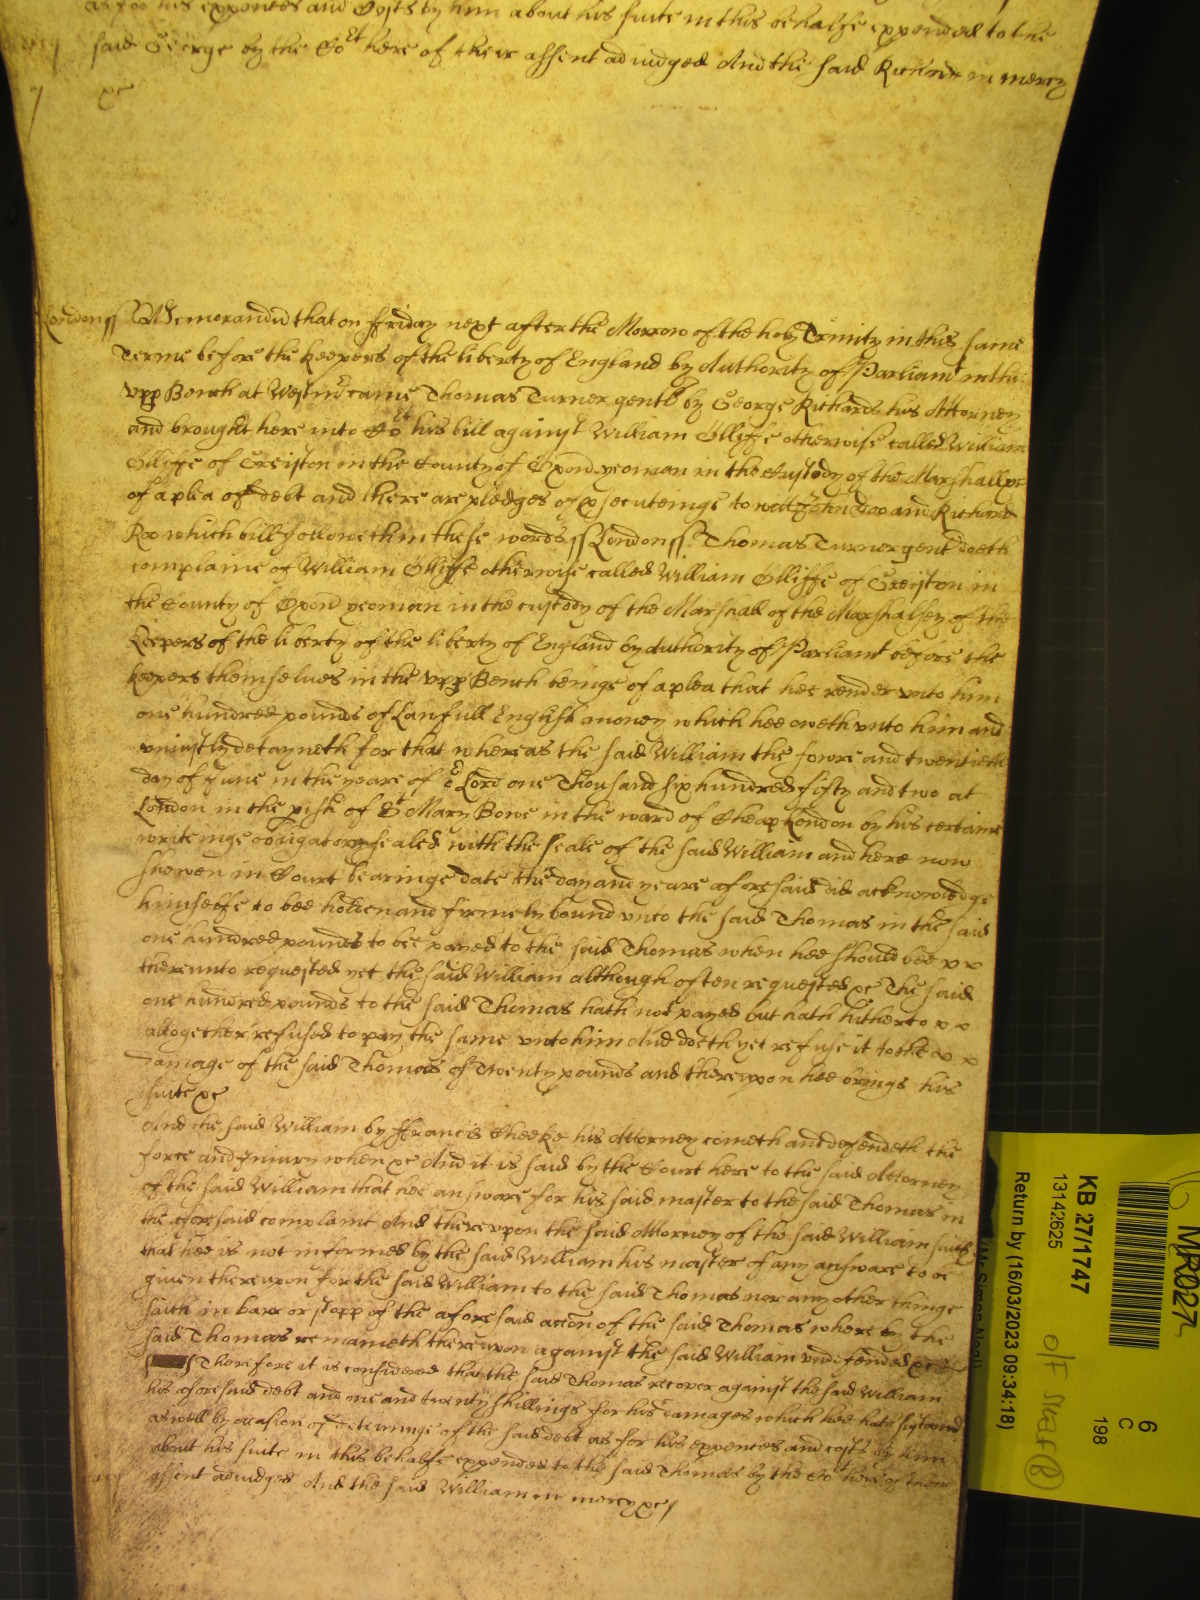 as for his expences and Costs by him about his suite in this behalfe expended to the
said George by the Cort here of their assent adiudged And the said Richard in mercy
&c
London ss Memorandū that on Friday next after the Morrow of the holy Trinity in this same
Terme before the keepers of the liberty of England by Authority of Parliamt in the
vpp Bench at Westmr came Thomas Turner gentl by George Richards his Attorney
and brought here into Cort his bill against William Olliffe otherwise called William
Olliffe of Creiston in the County of Oxon yeoman in the Custody of the Marshall &c
of a plea of debt and there are pledges of psecuteinge to witt John Doo and Richard
Roo which bill followeth in these words ss London ss Thomas Turner gent doeth
complaine of William Olliffe otherwise called William Olliffe of Creiston in
the County of Oxon yeoman in the custody of the Marshall of the Marshalsey of the
keepers of the liberty of the liberty of England by Authority of Parliamt before the
keepers themselves in the vpp Bench beinge of a plea that hee render vnto him
one hundred pounds of Lawfull English money which hee oweth vnto him and
vniustly detayneth for that whereas the said William the fowre and twentieth
day of June in the yeare of or Lord one Thousand six hundred fifty and two at
London in the pish of St Mary Bowe in the ward of Cheap London by his certaine
writeinge obligatory sealed with the seale of the said William and here now
shewen in Court bearinge date the day and yeare aforesaid did acknowledge
himselfe to bee holden and firmely bound vnto the said Thomas in the said
one hundred pounds to bee payed to the said Thomas when hee should bee
therevnto requested yet the said William although often requested &c The said
one hundred pounds to the said Thomas hath not payed but hath hitherto
altogether refused to pay the same vnto him And doeth yet refuse it to the
damage of the said Thomas of Twenty pounds and therevpon hee brings his
suite &c
And the said William by Francis Cheeke his Attorney cometh and defendeth the
force and Iniury when &c And it is said by the Court here to the said Attorney
of the said William that hee answare for his said master to the said Thomas in
the aforesaid complaint And therevpon the said Attorney of the said William saith
that hee is not informed by the said William his master of any answare to be
given therevpon for the said William to the said Thomas nor any other thinge
saith in barr or stopp of the aforesaid accon of the said Thomas whereby the
said Thomas remaineth therevpon against the said William vndefended &c
Therefore it is considered that the said Thomas recover against the said William
his aforesaid debt and one and twenty shillings for his damages which hee hath susteyned
as well by occasion of deteininge of the said debt as for his expences and costs by him
about his suite in this behalfe expended to the said Thomas by the Cort here of their
assent adiudged And the said William in mercy &c
Return by (16/03/2023 09:34:18)
13142625
KB 27/1747
O/F
6
C
198